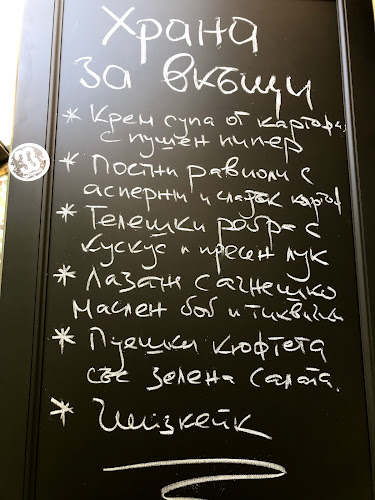 Храна
за вкъщи
* Крем супа от картофи
с пушен пипер
* Постни равиоли с
аспержи и сладък картоф
* Телешки ребра с
кускус и пресен лук
* Лазаня с агнешко
маслен боб и тиквички
* Пуешки кюфтета
със зелена салата.
* Чийзкейк